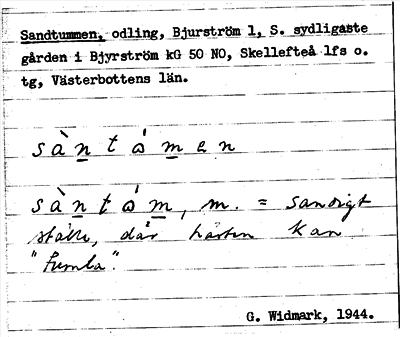 Sandtummen, odling, Bjurström 1, S. sydligaste
gården i Bjyrström kG 50 NO, Skellefteå lfs o.
tg, Västerbottens län.
sàntåmen
sàntåm, m. = sandigt
ställe, där hästen kan
"tumla".
G. Widmark, 1944.